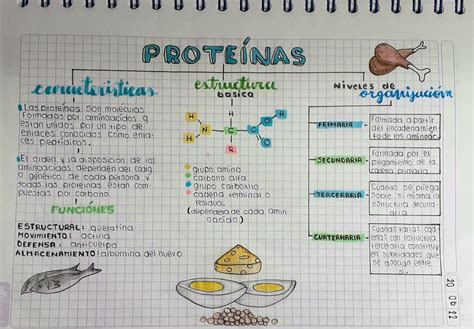 PROTEÍNAS
características
Las proteínas son moléculas
formadas por aminoácidos q
están unidos por un tipo de
enlaces conocidos como enla-
ces peptídicos.
El orden y la disposición de los
aminoácidos dependen del código
genético de cada persona y
todas las proteínas están com-
puestas por carbono
FUNCIONES
ESTRUCTURAL: queratina
MOVIMIENTO: actina
DEFENSA: anticuerpo
ALMACENAMIENTO: albúmina del huevo
estructura
básica
H
H
N
C
C
O
O
H
H
R
grupo amino
carbono alfa
grupo carboxilo
cadena terminal o
residuo.
(dependerá de cada amin-
oácido)
Niveles de
organización
PRIMARIA
Formada a partir
del encadenamien-
to de los aminoác.
SECUNDARIA
Formada por el
plegamiento de la
cadena primaria
TERCEARIA
Cuando se pliega
sobre sí misma la
estructura secund
aria
CUATERNARIA
Cuando varias cad
enas con estructura
terciaria constituy
en subunidades que
se asocian entre
sí.
20 06 22